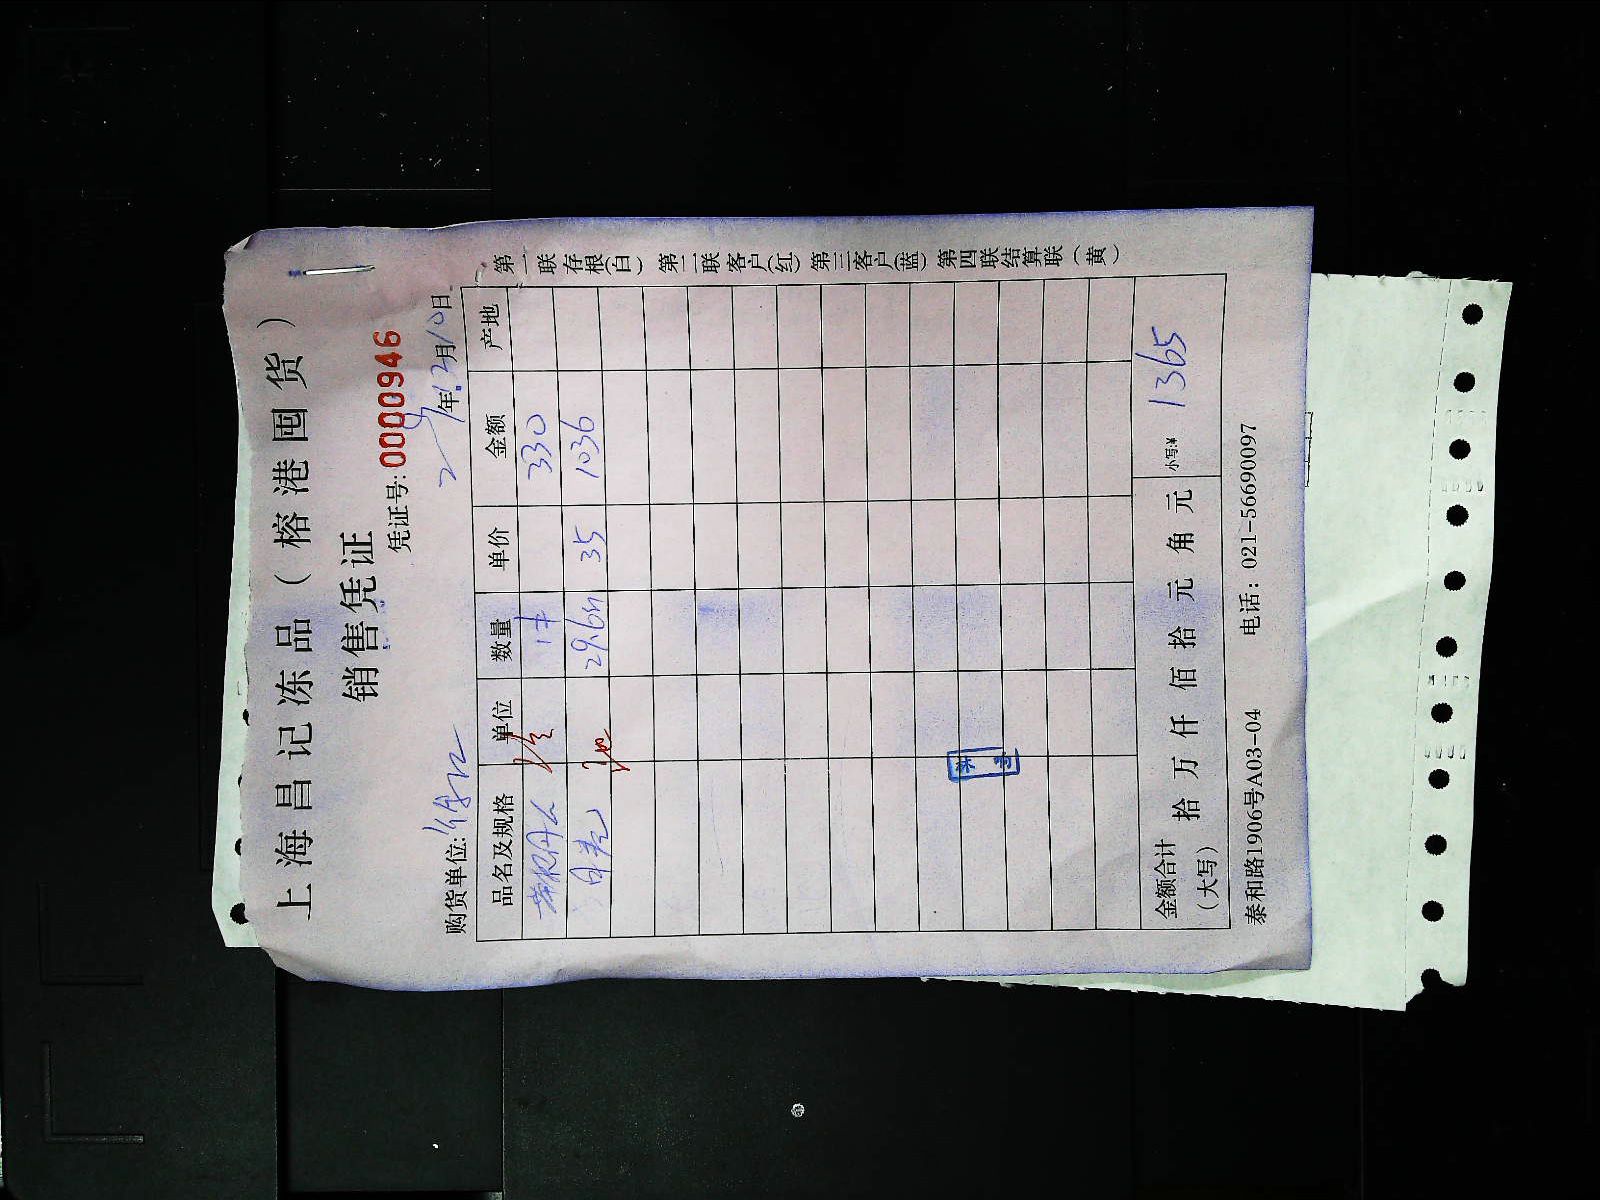 上海昌记冻品（榕港囤货）
销售凭证
凭证号: 0000946
购货单位: 年12月10日
品名及规格 单位 数量 单价 金额 产地
1件 330
29.6斤 35 1036
金额合计（大写） 拾 万 仟 佰 拾 元 角 元 小写:¥ 1365
泰和路1906号A03-04 电话: 021-56690097
第一联存根(白) 第二联客户(红) 第三客户(蓝) 第四联结算联(黄)